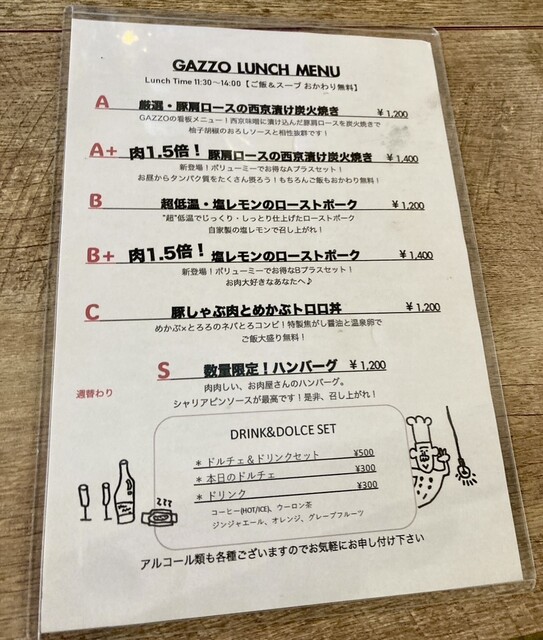 GAZZO LUNCH MENU
Lunch Time 11:30～14:00【ご飯＆スープ おかわり無料】
A 厳選・豚肩ロースの西京漬け炭火焼き ￥1,200
GAZZOの看板メニュー！西京味噌に漬け込んだ豚肩ロースを炭火焼きで
柚子胡椒のおろしソースと相性抜群です！
A+ 肉1.5倍！豚肩ロースの西京漬け炭火焼き ￥1,400
新登場！ボリューミーでお得なAプラスセット！
お昼からタンパク質をたくさん摂ろう！もちろんご飯もおかわり無料！
B 超低温・塩レモンのローストポーク ￥1,200
"超"低温でじっくり・しっとり仕上げたローストポーク
自家製の塩レモンで召し上がれ！
B+ 肉1.5倍！塩レモンのローストポーク ￥1,400
新登場！ボリューミーでお得なBプラスセット！
お肉大好きなあなたへ♪
C 豚しゃぶ肉とめかぶトロロ丼 ￥1,200
めかぶ×とろろのネバとろコンビ！特製焦がし醤油と温泉卵で
ご飯大盛り無料！
S 数量限定！ハンバーグ ￥1,200
週替わり
肉肉しい、お肉屋さんのハンバーグ。
シャリアピンソースが最高です！是非、召し上がれ！
DRINK&DOLCE SET
＊ドルチェ＆ドリンクセット ¥500
＊本日のドルチェ ¥300
＊ドリンク ¥300
コーヒー(HOT/ICE)、ウーロン茶
ジンジャエール、オレンジ、グレープフルーツ
アルコール類も各種ございますのでお気軽にお申し付け下さい